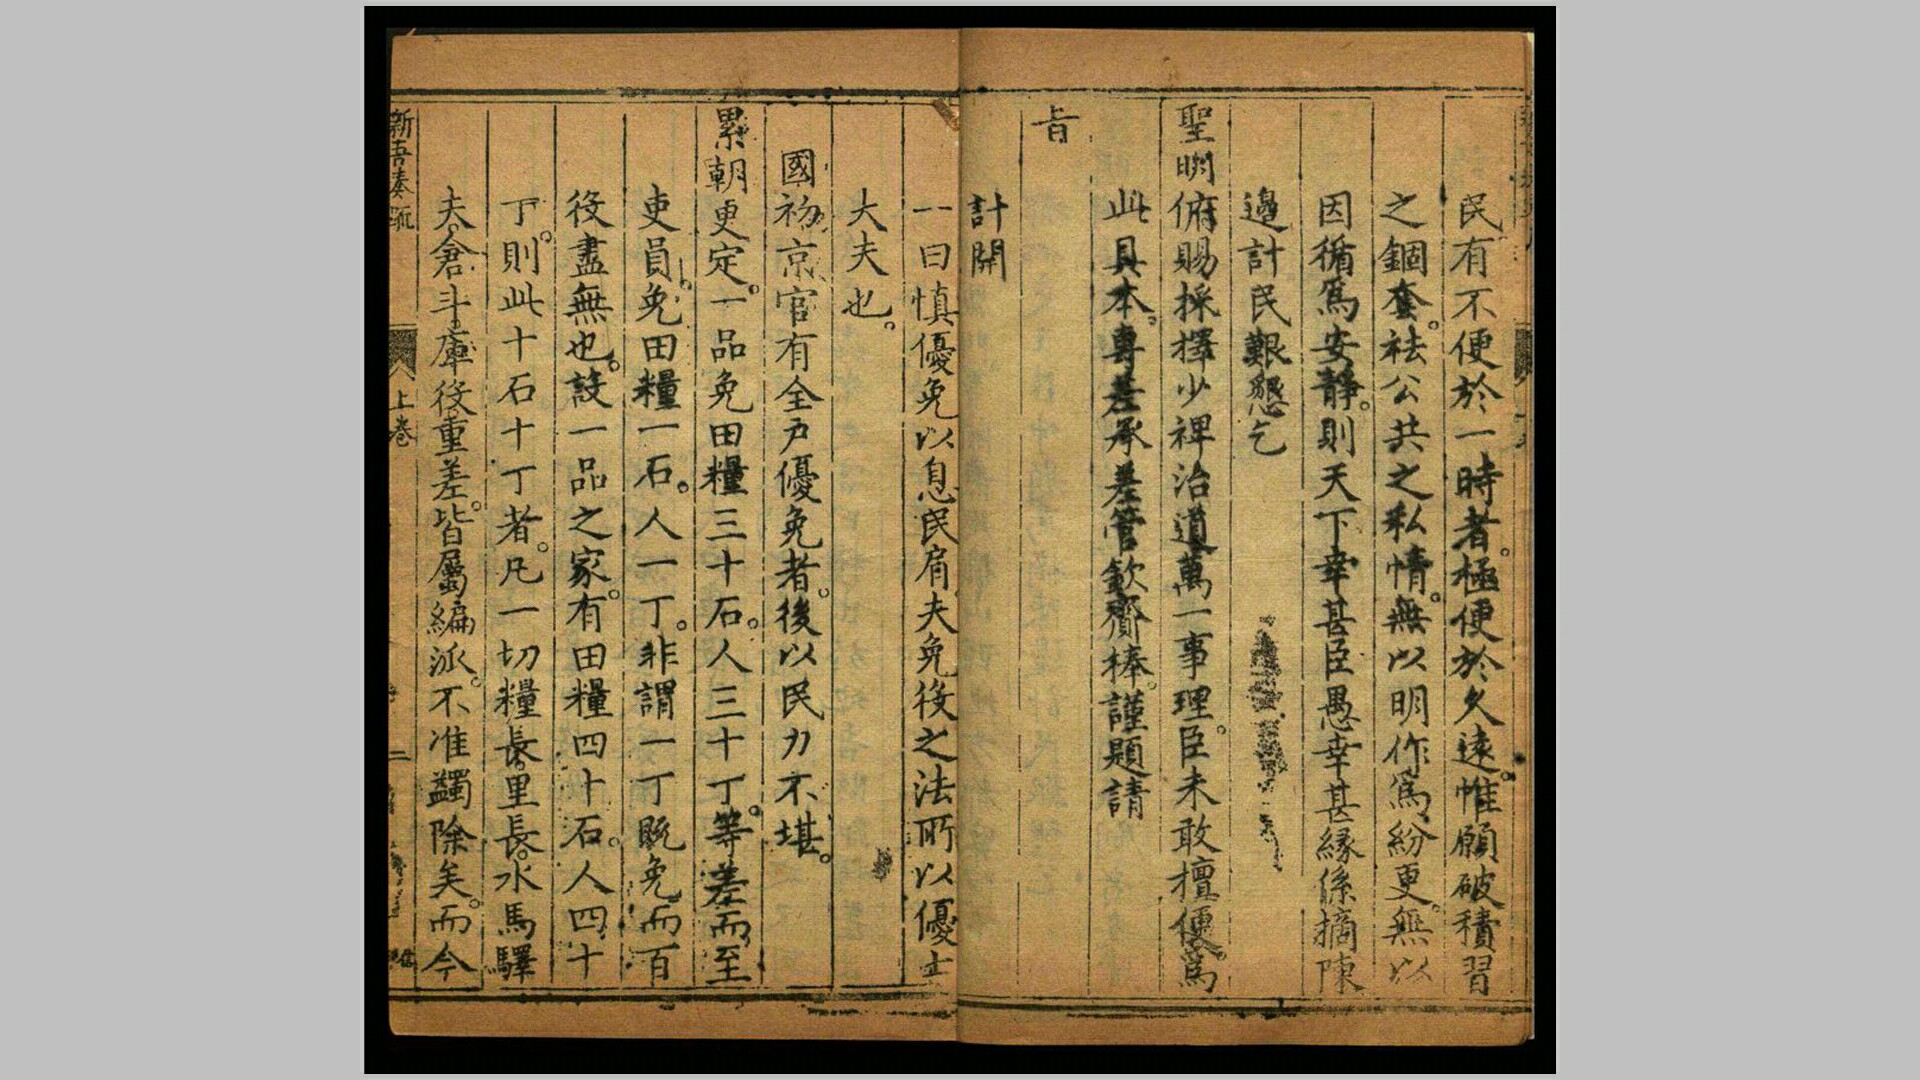 民有不便於一時者。極便於久遠。惟願破積習
之錮套。祛公共之私情。無以明作爲紛更。無以
因循爲安靜。則天下幸甚臣愚幸甚緣係摘陳
邊計民艱懇乞
聖明俯賜採擇少裨治道萬一事理。臣未敢擅便。爲
此具本。專差承差管歛齎捧。謹題請
旨
計開
一曰慎優免以息民肩。夫免役之法所以優士
大夫也。
國初京官有全戶優免者。後以民力不堪。
累朝更定。一品免田糧三十石。人三十丁。等差而至
吏員。免田糧一石。人一丁。非謂一丁既免。而百
役盡無也。設一品之家。有田糧四十石。人四十
丁。則此十石十丁者。凡一切糧長。里長。水馬驛
夫。倉斗。庫役。重差。皆屬編派。不准蠲除矣。而今
新吾奏疏
上卷
二